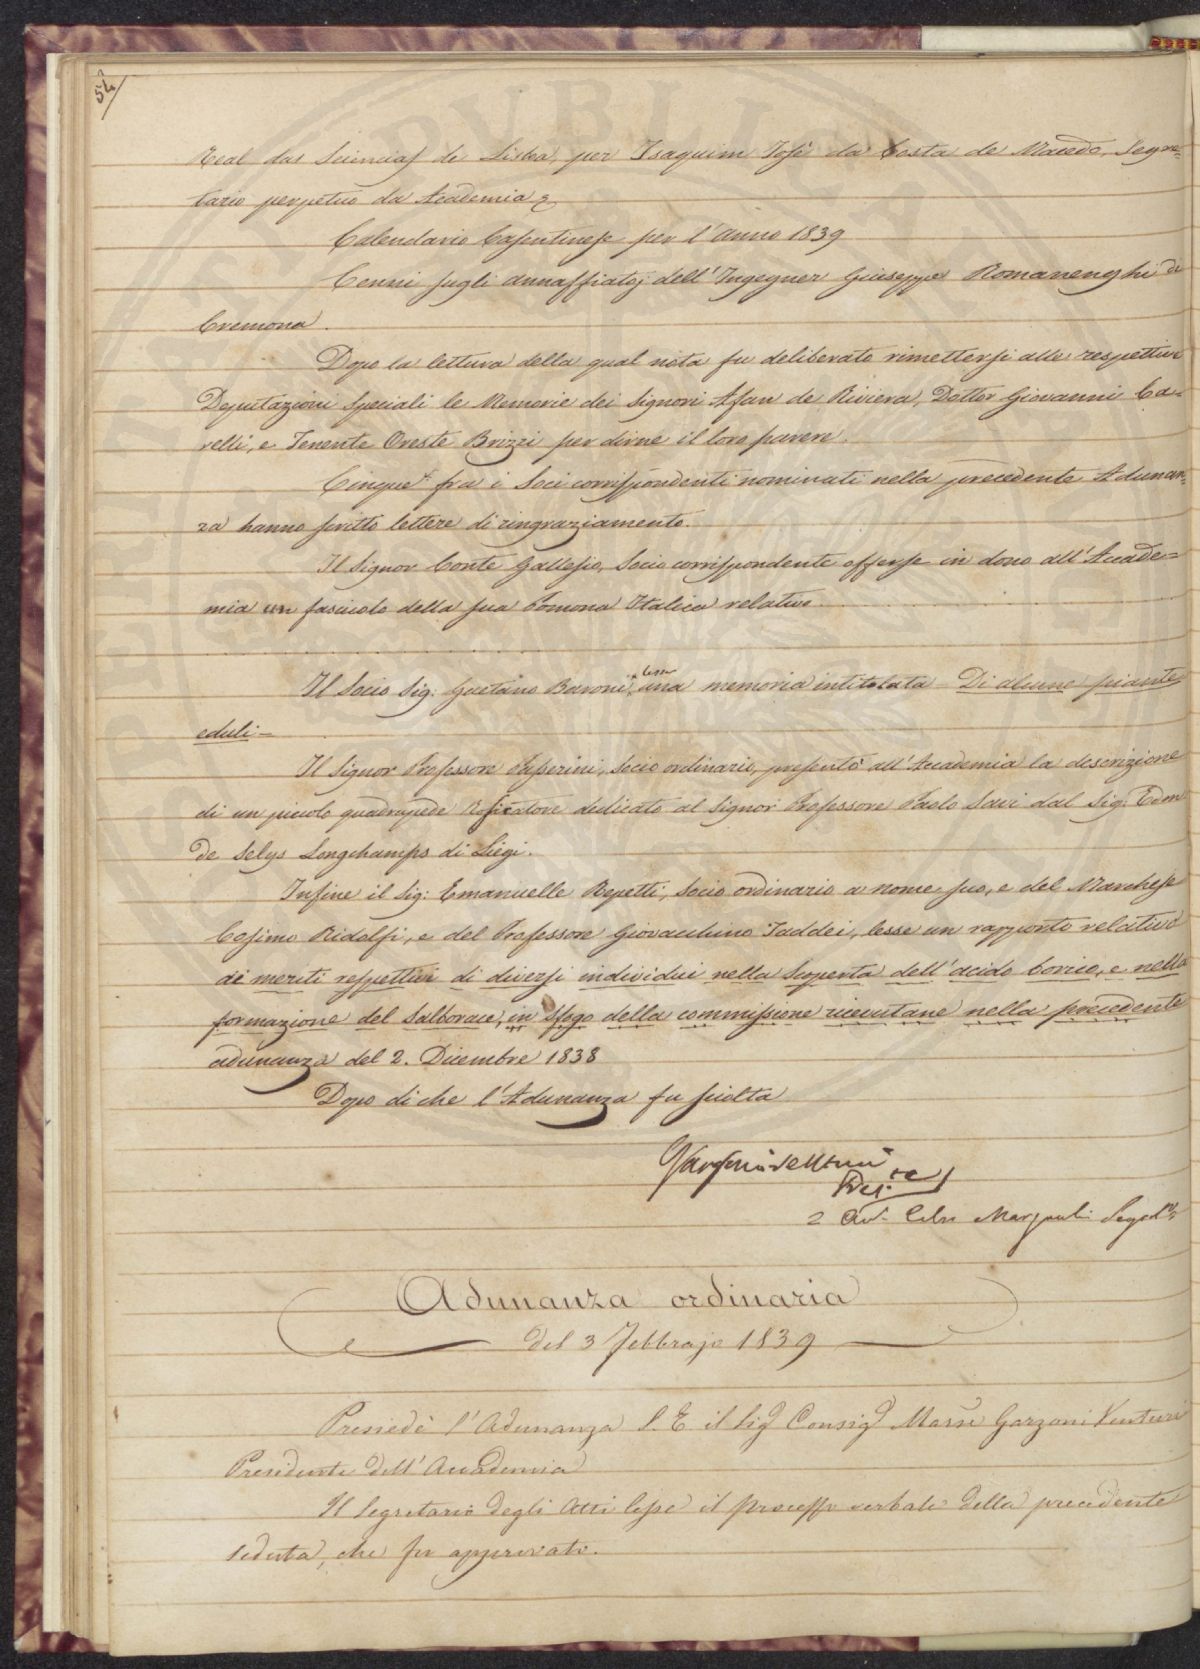 54
Real das Sciencias de Lisboa, per Isaquim José da Costa de Macedo, Segre=
tario perpetuo da Academia &
Calendario Casentinese per l'anno 1839
Cenni sugli annaffiatoj dell'Ingegner Giuseppe Romanenghi di
Cremona.
Dopo la lettura della qual nota fu deliberato rimettersi alle respettive
Deputazioni Speciali le Memorie dei Signori Afan de Riviera, Dottor Giovanni Ca=
relli, e Tenente Oreste Brizzi per dirne il loro parere.
Cinque fra i Soci corrispondenti nominati nella precedente Adunan=
za hanno scritto lettere di ringraziamento.
Il Signor Conte Gallesio, Socio corrispondente offerse in dono all'Accade=
mia un fascicolo della sua Pomona Italica relativo.
Il Socio Sig: Gaetano Baroni lesse una memoria intitolata Di alcune piante
eduli =
Il Signor Professore Passerini, Socio ordinario, presentò all'Accademia la descrizione
di un piccolo quadrupede Rosicatore dedicato al Signor Professore Paolo Savi dal Sig: Edm
de Selys Longchamps di Liegi.
Infine il Sig: Emanuelle Repetti, Socio ordinario a nome suo, e del Marchese
Cosimo Ridolfi, e del Professore Giovacchino Taddei, lesse un rapporto relativo
ai meriti respettivi di diversi individui nella Scoperta dell'acido borico, e nella
formazione del Salborace, in sfogo della commissione ricevutane nella precedente
adunanza del 2. Dicembre 1838
Dopo di che l'Adunanza fu sciolta
Pres.te
Avv. Celso Marzucchi Seg.
Adunanza ordinaria
del 3 Febbrajo 1839
Presiedè l'Adunanza S. E il Sig Consig Marse Garzoni Venturi
Presidente dell'Accademia
Il Segretario degli Atti lesse il processo verbale della precedente
seduta, che fu approvato.